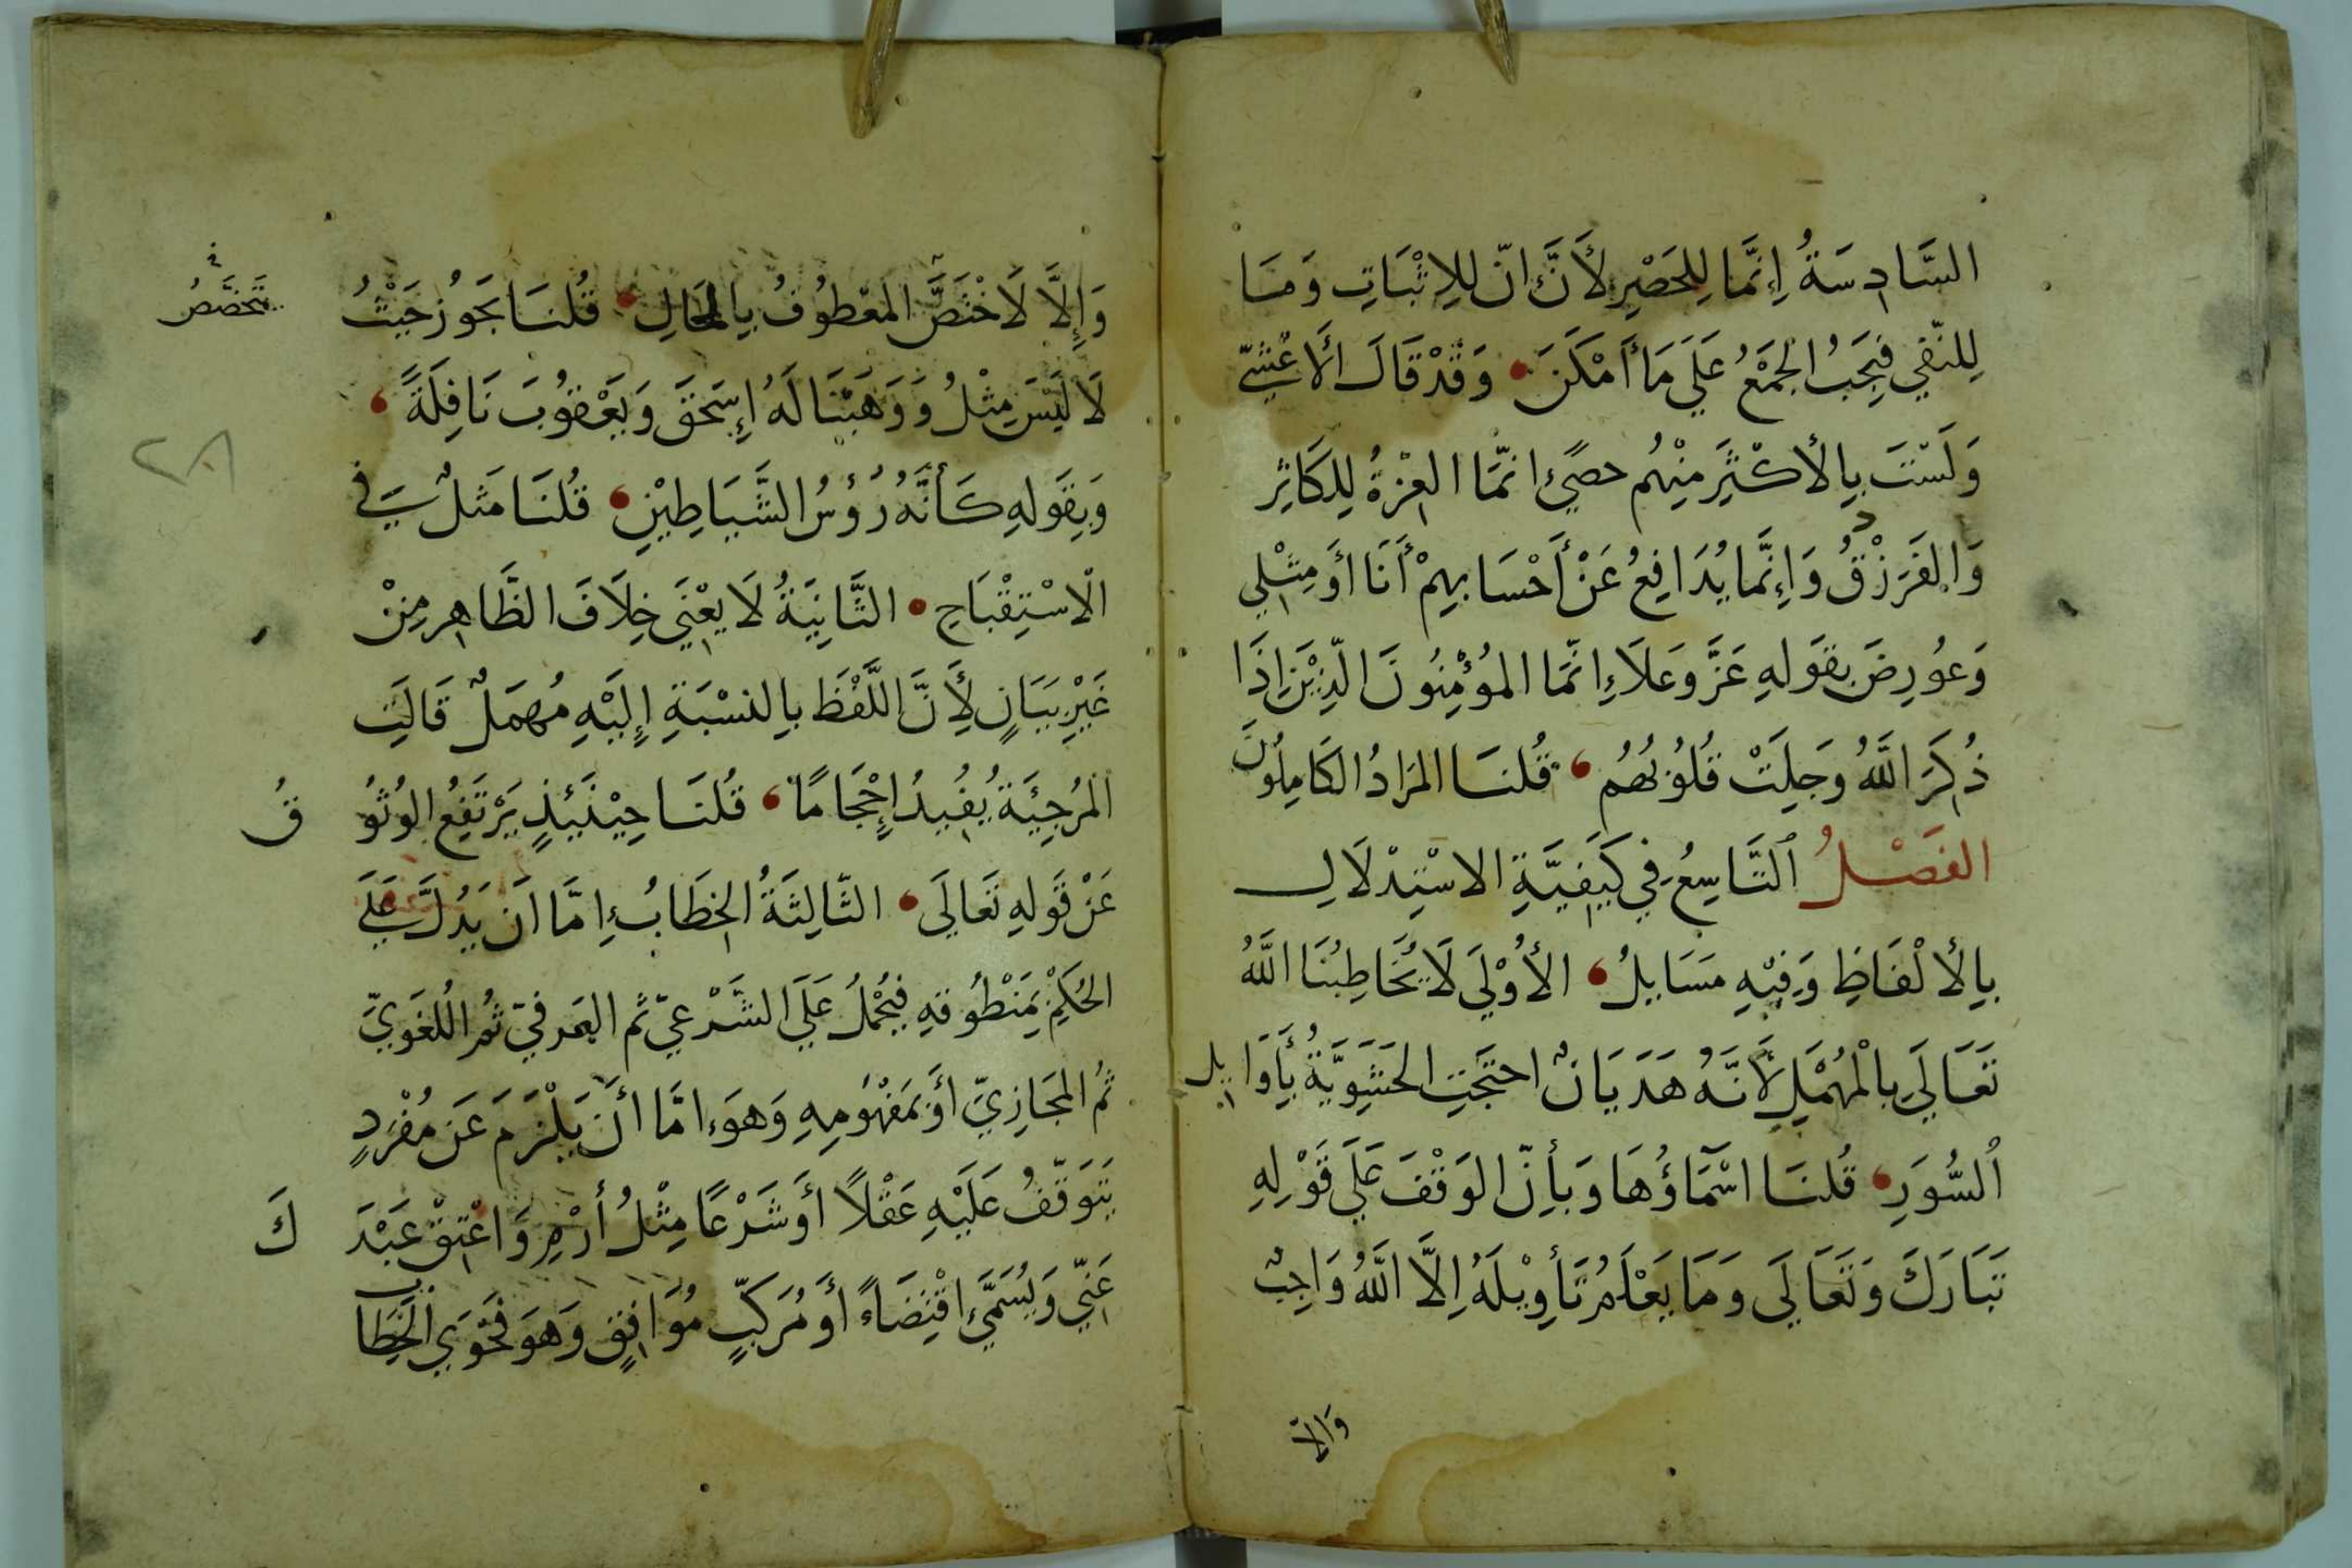 السَّادِسَةُ إِنَّمَا لِلحَصْرِ لأَنَّ انّ للإِثْبَاتِ وَمَا
لِلنّفي فيَجَبُ الجَمْعُ عَلَي مَا أَمْكَنَ وَقَدْ قَالَ الأَعْشيّ
وَلَسْتَ بِالأكثَرِ مِنْهُم حصىً انّمَا العِزةُ لِلكَاثِرِ
وَالفَرَزْدقُ وَإِنَّما يُدَافِعُ عَنْ أَحْسَابِهِمْ أَنَا أوَمِثْلِي
وَعُورِضَ بِقَولِهِ عَزَّ وَعَلاَ إِنَّمَا المُؤْمِنُونَ الَّذِيْنَ إذَا
ذُكِرَ اللَّهُ وَجِلَتْ قُلُوبُهُم قُلنَا المرَادُ الكَامِلُونَ
الفَصْلُ التَّاسِعُ فِي كَيَفِيَّةِ الاسْتِدْلَالِ
بِالأَلْفَاظِ وَفِيْهِ مَسَايلُ الأُوْلَي لَا يُخَاطِبُنَا اللَّهُ
تَعَالَي بِالْمُهْمَلِ لأَنَّهُ هَذَيَانٌ احتَجَّتِ الحَشَوِيَّةُ بأَوَايِلِ
السُّوَرِ قُلنَا اسْمَاؤُهَا وَبأِنّ الوَقْفَ عَلَي قَوْلِهِ
تَبَارَكَ وَتَعَالَى وَمَا يَعْلَمُ تَأوِيْلَهُ إِلَّا اللَّهُ وَاجِبٌ
وَالّا
وَإِلَّا لَاخْتَصَّ المَعْطُوفُ بِالحَالِ قُلنَا يَجَوُز حَيْثُ
تَخَصَّصُ
لَا لَبْسَ مِثْلُ وَوَهَبْنَا لَهُ إِسْحَقَ وَيَعْقُوبَ نَافِلَةً
٢٨
وَبِقَولِهِ كَأَنَّهُ رُؤُسُ الشَّيَاطِيْنِ قُلنَا مَثَلٌ في
الْاسْتِقْبَاحِ الثَّانِيَةُ لَا يعْنِي خِلَافَ الظَّاهِر مِنْ
غَيْرِ بَيَانٍ لأِنَّ اللَّفْظَ بِالنسْبَةِ إلَيْهِ مُهمَلٌ قَالَتِ
المُرجِئَةُ يُفِيدُ إِحْجَامًا قُلنَا حِيْنَئِذٍ يَرْتَفِعُ الوُثوُ
قُ
عَنْ قَولِهِ تَعَالَى الثَّالِثَةُ الخِطَابُ إِمَّا انَ يَدُلَّ عَلَى
الحُكمِ بِمَنْطُوقهِ فيُحْمَلُ عَلَي الشَّرْعيّ ثُم العُرفيّ ثُم اللغَويّ
ثُم المجَازِيّ أَوَ بمَفْهُومِهِ وَهوَ إِمَّا أَنَ يَلْزَمَ عَن مُفْرَدٍ
يَتَوَقّفُ عَلَيْهِ عَقْلاً أَوَ شَرْعًا مِثْلُ أرْمِ وَاعْتِقْ عَبْدَ
كَ
عَنِّي وَيُسَمَّي اقْتِضَاءً أَوَ مُرَكّبٍ مُوَافِقٍ وَهوَ فَحْوَي الخِطَابِ